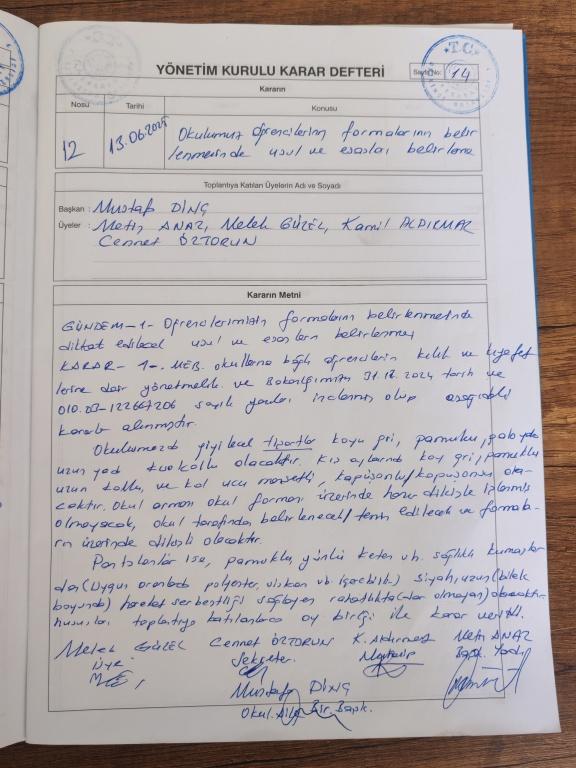 T.C.
T.C.
YÖNETİM KURULU KARAR DEFTERİ
Sayfa No: 14
Kararın
Nosu
Tarihi
Konusu
12
13.06.2025
Okulumuz öğrencilerinin formalarının belir
lenmesinde usul ve esasları belirleme
Toplantıya Katılan Üyelerin Adı ve Soyadı
Başkan : Mustafa DİNÇ
Üyeler : Metin ANAZ, Melek GÜZEL, Kamil ALDIRMAZ
Cennet ÖZTORUN
Kararın Metni
GÜNDEM-1- Öğrencilerimizin formaların belirlenmesinde
dikkat edilecek usul ve esasların belirlenmesi
KARAR-1-. MEB. okullarına bağlı öğrencilerin kılık ve kıyafet
lerine dair yönetmelik ve Bakanlığımızın 31.12.2024 tarih ve
sayılı yazıları incelenmiş olup aşağıdaki
kararlar alınmıştır.
Okulumuzda giyilecek tişörtler koyu gri, pamuklu, polo yaka
uzun yada kısa kollu olacaktır. Kış aylarında koyu gri, pamuklu
uzun kollu, ve kol ucu manşetli, kapüşonlu/kapüşonsuz ola-
caktır. Okul arması okul forması üzerinde hazır dikilişle işlenmiş
olmayacak, okul tarafından belirlenecek/temin edilecek ve formala-
rın üzerinde dikişli olacaktır.
Pantolonlar ise, pamuklu, yünlü keten vb. sağlıklı kumaşlar
dan (Uygun oranlarda polyester, viskon vb. içerebilir) siyah, uzun (bilek
boyunda) hareket serbestliği sağlayan rahatlıkta (dar olmayan) olacaktır.
hususları toplantıya katılanlarca oy birliği ile karar verildi.
Melek GÜZEL Cennet ÖZTORUN K. Aldırmaz Metin ANAZ
Üye Sekreter Muhasip Başk. Yard.
Mustafa DİNÇ
Okul Aile Bir. Başk.